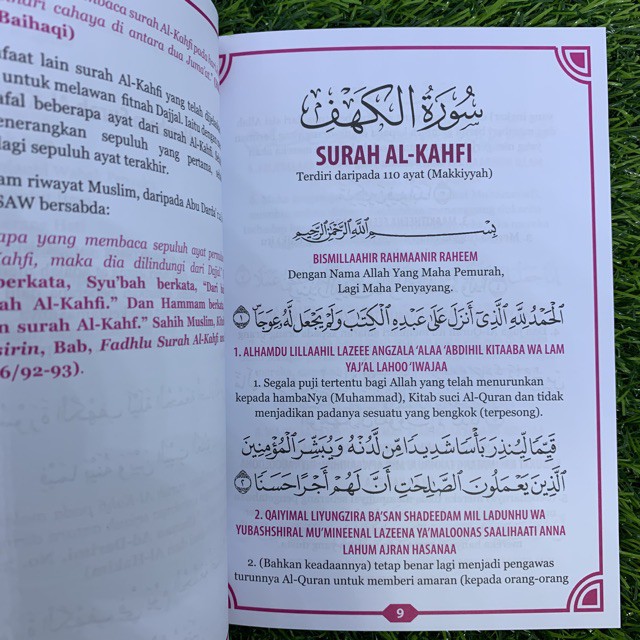 mbaca surah Al-Kahfi pada
hari cahaya di antara dua Jumaat."
Baihaqi)
faat lain surah Al-Kahfi yang telah
untuk melawan fitnah Dajjal. Iaitu dengan
afal beberapa ayat dari surah Al-Kahfi.
enerangkan sepuluh yang pertama,
lagi sepuluh ayat terakhir.
am riwayat Muslim, daripada Abu Darda'
SAW bersabda:
apa yang membaca sepuluh ayat
Kahfi, maka dia dilindungi dari Dajjal
berkata, Syu'bah berkata, "Dari
ah Al-Kahfi." Dan Hammam
n surah Al-Kahf." Sahih Muslim,
sirin, Bab, Fadhlu Surah Al-Kahfi
6/92-93).
سُورَةُ الكَهْفِ
SURAH AL-KAHFI
Terdiri daripada 110 ayat (Makkiyyah)
بِسْمِ اللَّهِ الرَّحْمَٰنِ الرَّحِيمِ
BISMILLAAHIR RAHMAANIR RAHEEM
Dengan Nama Allah Yang Maha Pemurah,
Lagi Maha Penyayang.
الْحَمْدُ لِلَّهِ الَّذِي أَنزَلَ عَلَىٰ عَبْدِهِ الْكِتَابَ وَلَمْ يَجْعَل لَّهُ عِوَجًا ١
1. ALHAMDU LILLAAHIL LAZEEE ANGZALA 'ALAA 'ABDIHIL KITAABA WA LAM
YAJ'AL LAHOO 'IWAJAA
1. Segala puji tertentu bagi Allah yang telah menurunkan
kepada hambaNya (Muhammad), Kitab suci Al-Quran dan tidak
menjadikan padanya sesuatu yang bengkok (terpesong).
قَيِّمًا لِّيُنذِرَ بَأْسًا شَدِيدًا مِّن لَّدُنْهُ وَيُبَشِّرَ الْمُؤْمِنِينَ
الَّذِينَ يَعْمَلُونَ الصَّالِحَاتِ أَنَّ لَهُمْ أَجْرًا حَسَنًا ٢
2. QAIYIMAL LIYUNGZIRA BA'SAN SHADEEDAM MIL LADUNHU WA
YUBASHSHIRAL MU'MINEENAL LAZEENA YA'MALOONAS SAALIHAATI ANNA
LAHUM AJRAN HASANAA
2. (Bahkan keadaannya) tetap benar lagi menjadi pengawas
turunnya Al-Quran untuk memberi amaran (kepada orang-orang
9